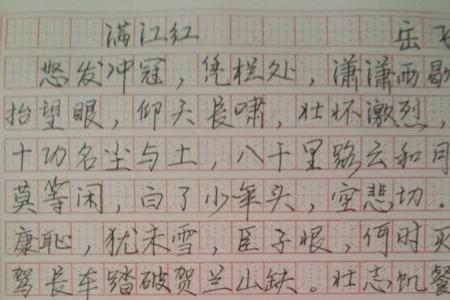 满江红 岳飞
怒发冲冠，凭栏处，潇潇雨歇
抬望眼，仰天长啸，壮怀激烈，
十功名尘与土，八千里路云和月
莫等闲，白了少年头，空悲切.
康耻，犹未雪，臣子恨，何时灭
驾长车踏破贺兰山缺。壮志饥餐